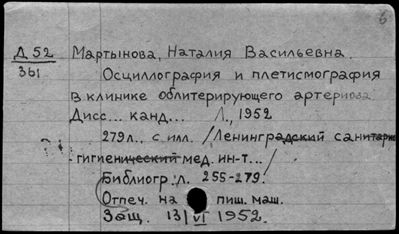 б
Д 52
361
Мартынова, Наталия Васильевна.
Осциллография и плетисмография
в клинике облитерирующего артериоза.
Дисс... канд... Л., 1952
279л., с илл. /Ленинградский санитарно
-гигиенический мед. ин-т.../
Библиогр.: л. 255-279.
Отпеч. на пиш. маш.
Защ. 13/VI 1952.